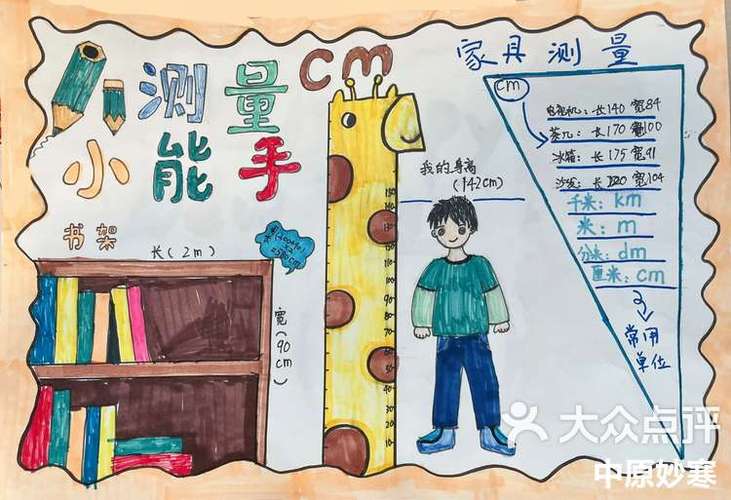 小测量
小能手
cm
家具测量
cm
电视机:长140 宽84
茶几:长170 宽100
冰箱:长175 宽91
沙发:长220 宽104
千米:km
米:m
分米:dm
厘米:cm
常用
单位
我的身高
(142cm)
书架
长(2m)
宽(90cm)
90
80
70
60
50
40
30
20
10
大众点评
中原妙寒